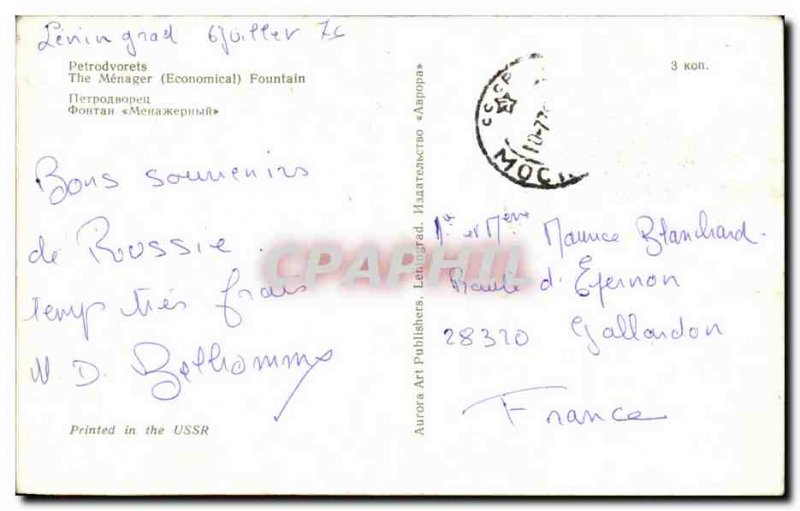 Léningrad 6 juillet 76
Petrodvorets
The Ménager (Economical) Fountain
Петродворец
Фонтан «Менажерный»
3 коп.
СССР
10-77
МОС
Bons souvenirs
de Roussie
temp très frais
N. D. Belhomme
Printed in the USSR
Aurora Art Publishers. Leningrad. Издательство «Аврора»
CPAPHIL
Mr et Mme Maurice Blanchard
Route d'Epernon
28320 Gallardon
France